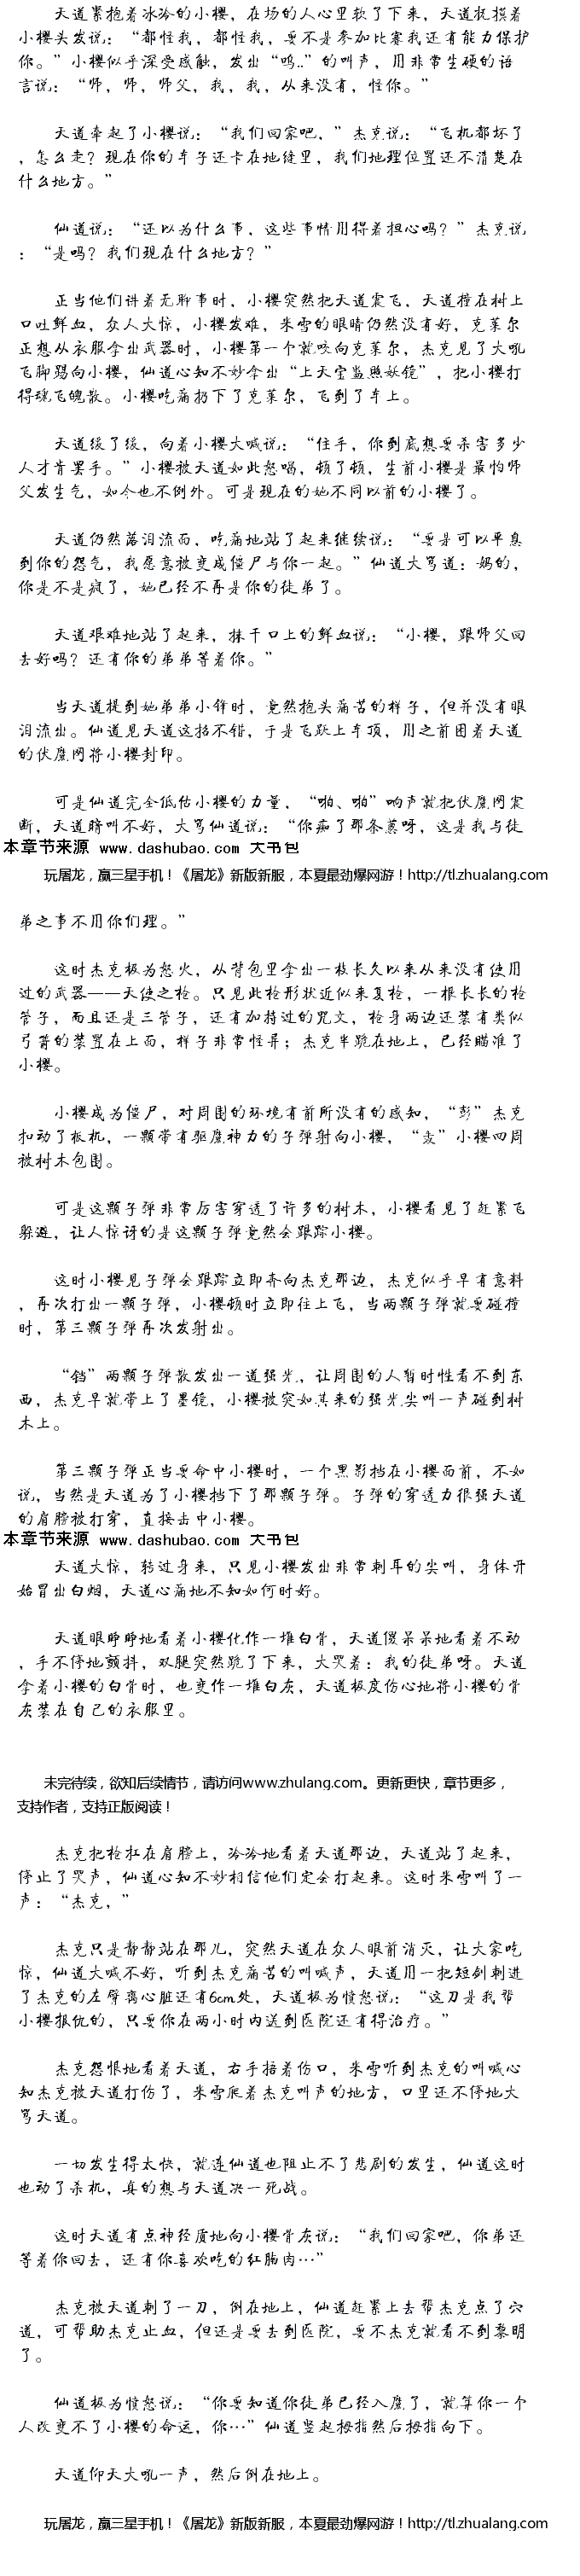 天道紧抱着冰冷的小樱，在场的人心里软了下来，天道抚摸着
小樱头发说：“都怪我，都怪我，要不是参加比赛我还有能力保护
你。”小樱似乎深受感触，发出“呜..”的叫声，用非常生硬的语
言说：“师，师，师父，我，我，从来没有，怪你。”
天道牵起了小樱说：“我们回家吧，”杰克说：“飞机都坏了
，怎么走？现在你的车子还卡在地缝里，我们地理位置还不清楚在
什么地方。”
仙道说：“还以为什么事，这些事情用得着担心吗？”杰克说
：“是吗？我们现在什么地方？”
正当他们讲着无聊事时，小樱突然把天道震飞，天道撞在树上
口吐鲜血，众人大惊，小樱发难，米雪的眼睛仍然没有好，克莱尔
正想从衣服拿出武器时，小樱第一个就咬向克莱尔，杰克见了大吼
飞脚踢向小樱，仙道心知不妙拿出“上天宝监照妖镜”，把小樱打
得魂飞魄散。小樱吃痛扔下了克莱尔，飞到了车上。
天道缓了缓，向着小樱大喊说：“住手，你到底想要杀害多少
人才肯罢手。”小樱被天道如此怒喝，顿了顿，生前小樱是最怕师
父发生气，如今也不例外。可是现在的她不同以前的小樱了。
天道仍然落泪流面，吃痛地站了起来继续说：“要是可以平息
到你的怨气，我愿意被变成僵尸与你一起。”仙道大骂道：妈的，
你是不是疯了，她已经不再是你的徒弟了。
天道艰难地站了起来，抹干口上的鲜血说：“小樱，跟师父回
去好吗？还有你的弟弟等着你。”
当天道提到她弟弟小锋时，竟然抱头痛苦的样子，但并没有眼
泪流出。仙道见天道这招不错，于是飞跃上车顶，用之前困着天道
的伏魔网将小樱封印。
可是仙道完全低估小樱的力量，“啪、啪”响声就把伏魔网震
断，天道暗叫不好，大骂仙道说：“你痴了那条葱呀，这是我与徒
本章节来源 www.dashubao.com 大书包
玩屠龙，赢三星手机！《屠龙》新版新服，本夏最劲爆网游！http://tl.zhualang.com
弟之事不用你们理。”
这时杰克极为怒火，从背包里拿出一枝长久以来从来没有使用
过的武器——天使之枪。只见此枪形状近似来复枪，一根长长的枪
管子，而且还是三管子，还有加持过的咒文，枪身两边还装有类似
弓箭的装置在上面，样子非常怪异；杰克半跪在地上，已经瞄准了
小樱。
小樱成为僵尸，对周围的环境有前所没有的感知，“彭”杰克
扣动了板机，一颗带有驱魔神力的子弹射向小樱，“轰”小樱四周
被树木包围。
可是这颗子弹非常厉害穿透了许多的树木，小樱看见了赶紧飞
躲避，让人惊讶的是这颗子弹竟然会跟踪小樱。
这时小樱见子弹会跟踪立即奔向杰克那边，杰克似乎早有意料
，再次打出一颗子弹，小樱顿时立即往上飞，当两颗子弹就要碰撞
时，第三颗子弹再次发射出。
“铛”两颗子弹散发出一道强光，让周围的人暂时性看不到东
西，杰克早就带上了墨镜，小樱被突如其来的强光尖叫一声碰到树
木上。
第三颗子弹正当要命中小樱时，一个黑影挡在小樱面前，不如
说，当然是天道为了小樱挡下了那颗子弹。子弹的穿透力很强天道
的肩膀被打穿，直接击中小樱。
本章节来源 www.dashubao.com 大书包
天道大惊，转过身来，只见小樱发出非常刺耳的尖叫，身体开
始冒出白烟，天道心痛地不知如何时好。
天道眼睁睁地看着小樱化作一堆白骨，天道傻呆呆地看着不动
，手不停地颤抖，双腿突然跪了下来，大哭着：我的徒弟呀。天道
拿着小樱的白骨时，也变作一堆白灰，天道极度伤心地将小樱的骨
灰装在自己的衣服里。
未完待续，欲知后续情节，请访问www.zhulang.com。更新更快，章节更多，
支持作者，支持正版阅读！
杰克把枪扛在肩膀上，冷冷地看着天道那边，天道站了起来，
停止了哭声，仙道心知不妙相信他们定会打起来。这时米雪叫了一
声：“杰克，”
杰克只是静静站在那儿，突然天道在众人眼前消灭，让大家吃
惊，仙道大喊不好，听到杰克痛苦的叫喊声，天道用一把短剑刺进
了杰克的左臂离心脏还有6cm处，天道极为愤怒说：“这刀是我帮
小樱报仇的，只要你在两小时内送到医院还有得治疗。”
杰克怨恨地看着天道，右手捂着伤口，米雪听到杰克的叫喊心
知杰克被天道打伤了，米雪爬着杰克叫声的地方，口里还不停地大
骂天道。
一切发生得太快，就连仙道也阻止不了悲剧的发生，仙道这时
也动了杀机，真的想与天道决一死战。
这时天道有点神经质地向小樱骨灰说：“我们回家吧，你弟还
等着你回去，还有你喜欢吃的红肠肉…”
杰克被天道刺了一刀，倒在地上，仙道赶紧上去帮杰克点了穴
道，可帮助杰克止血，但还是要去到医院，要不杰克就看不到黎明
了。
仙道极为愤怒说：“你要知道你徒弟已经入魔了，就算你一个
人改变不了小樱的命运，你…”仙道竖起拇指然后拇指向下。
天道仰天大吼一声，然后倒在地上。
玩屠龙，赢三星手机！《屠龙》新版新服，本夏最劲爆网游！http://tl.zhualang.com